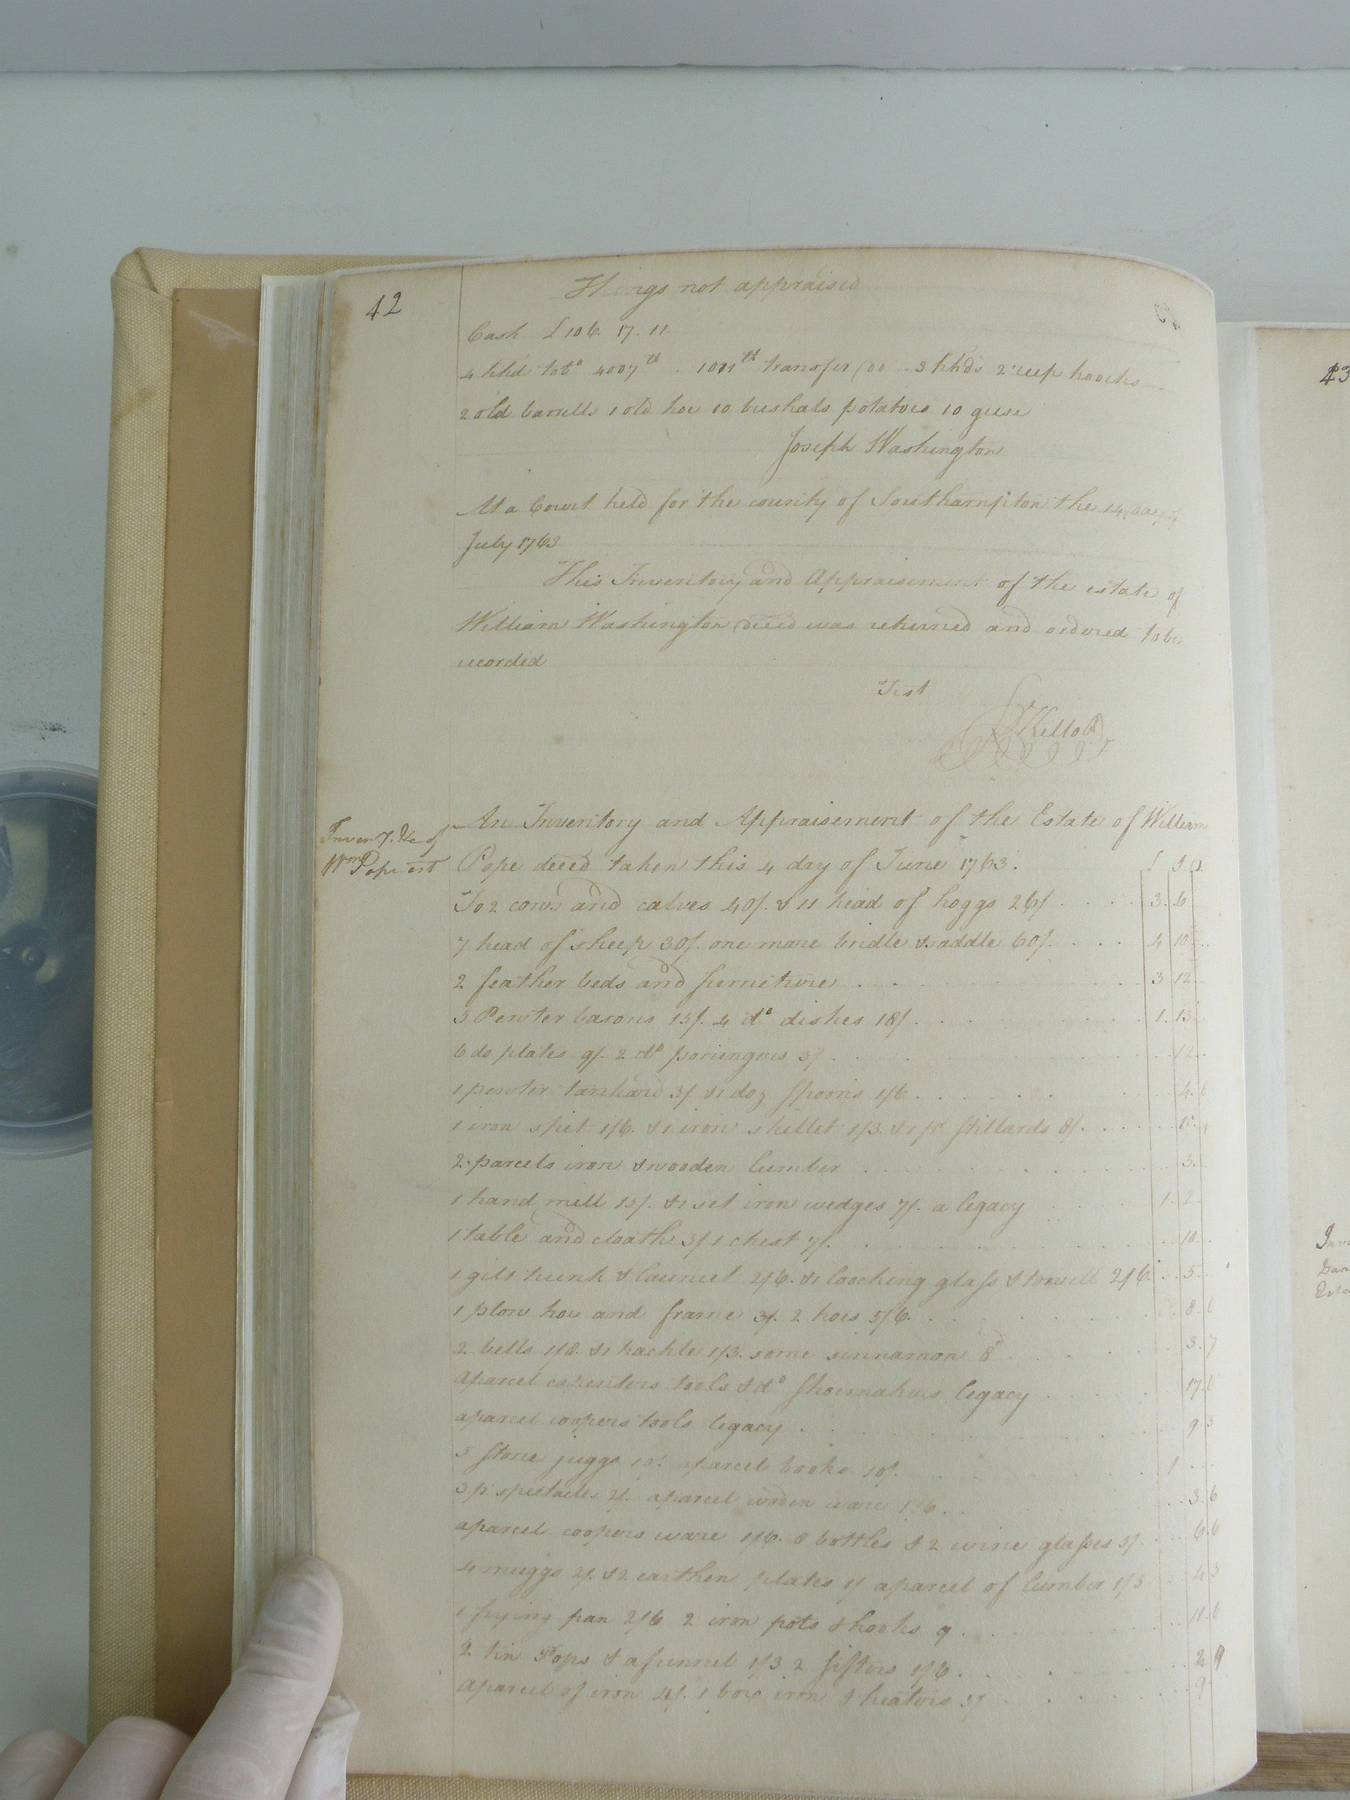 42
Things not appraised
Cash £106. 17. 11.
4 hhd tobo 4007 tt . 1011 tt transfer do .. 3 hhds 2 reep hoocks
2 old barrells 1 old hoe 10 bushals potatoes 10 geese
Joseph Washington
At a Court held for the county of Southampton the 14 day of
July 1763
This Inventory and Appraisement of the estate of
William Washington deced was returned and ordered to be
recorded
Test
Kello
Invent. &c of
Wm Pope est
An Inventory and Appraisement of the Estate of William
Pope deced taken this 4 day of June 1763. £ S D
To 2 cows and calves 40/. & 11 head of hoggs 26/ 3. 6
7 head of sheep 30/. one mare bridle & saddle 60/. 4 10
2 feather beds and furniture 3 12
5 Pewter basons 15/. 4 do dishes 18/. 1. 13
6 do plates 9/. 2 do poringers 3/. 12
1 pewter tankard 3/ & 1 doz spoons 1/6 4. 6
1 iron spit 1/6. & 1 iron skillet 1/3. & 1 pr stillards 8/. 10. 9
2 parcels iron & wooden lumber 3.
1 hand mill 15/. & 1 set iron wedges 7/. a legacy 1. 2
1 table and cloath 3/ 1 chest 7/. 10
1 gilt trunk & launcet 2/6. & 1 loocking glass & towell 2/6 5
1 plow hoe and frame 3/. 2 hoes 5/6. 8 6
2 bells 1/8. & 1 hackle 1/3. some sinnamon 8d 3. 7
aparcel carpentors tools & do shoemakers legacy 17 6
aparcel coopers tools legacy 9 3
3 stone juggs 10/. aparcel books 10/. 1
3 pr spectacles 2/. aparcel woden ware 1/6. 3. 6
aparcel coopers ware 1/6. 8 bottles & 2 wine glasses 5/. 6 6
4 muggs 2/. & 2 earthen plates 1/ aparcel of lumber 1/3 4 3
1 frying pan 2/6 2 iron pots & hooks 9 11. 6
2 tin & a funnel 1/3 2 sifters 1/6. 2 9
aparcel of iron 4/. 1 box iron & heators 5/ 9
43